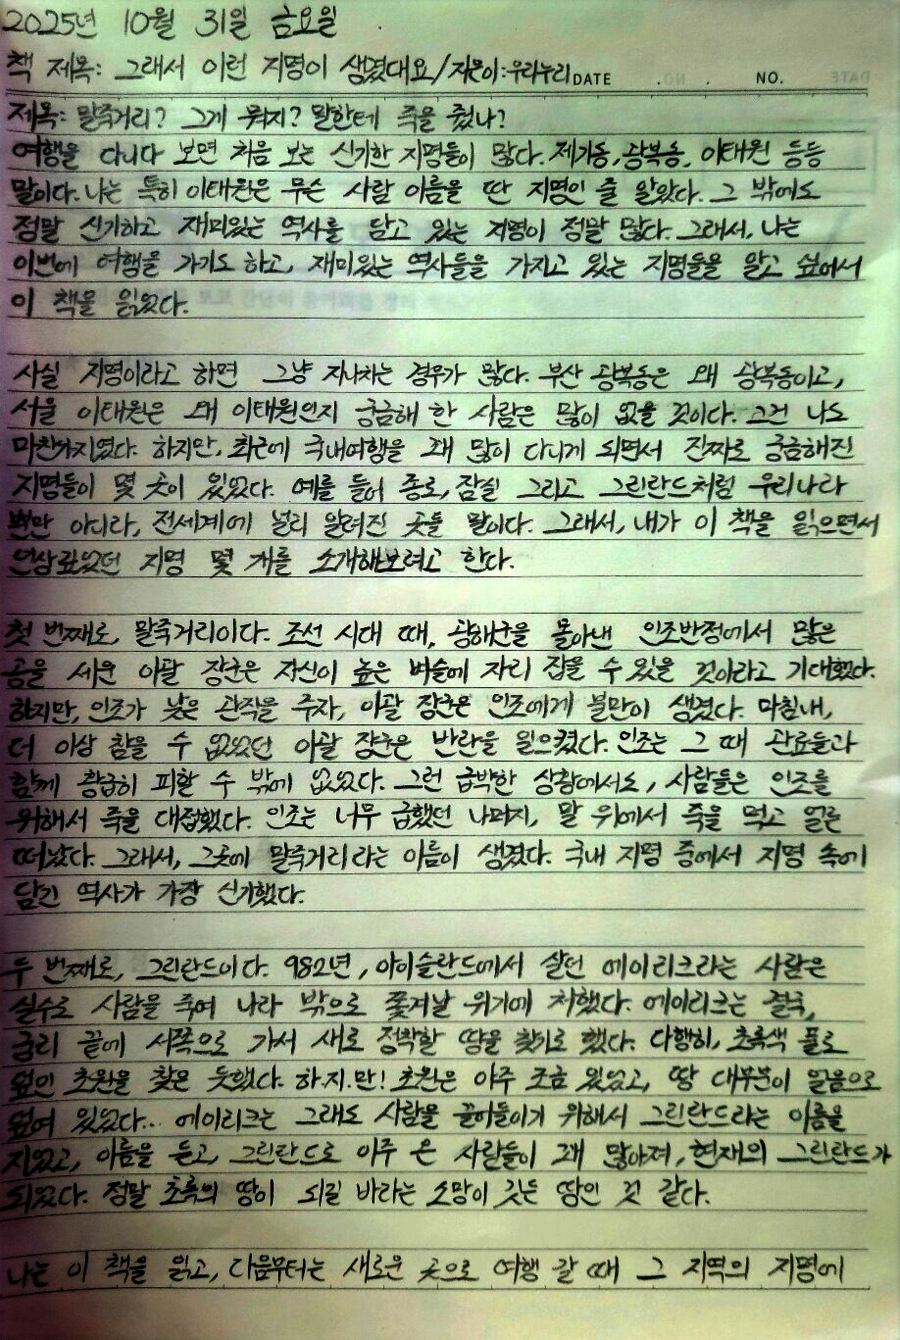 2025년 10월 31일 금요일
책 제목: 그래서 이런 지명이 생겼대요/지은이:우리누리 DATE . NO. . NO. DATE
제목: 말죽거리? 그게 뭐지? 말한테 죽을 줬나?
여행을 다니다 보면 처음 보는 신기한 지명들이 많다. 제기동, 광복동, 이태원 등등
말이다. 나는 특히 이태원은 무슨 사람 이름을 딴 지명인 줄 알았다. 그 밖에도
정말 신기하고 재미있는 역사를 담고 있는 지명이 정말 많다. 그래서, 나는
이번에 여행을 가기도 하고, 재미있는 역사들을 가지고 있는 지명들을 알고 싶어서
이 책을 읽었다.
사실 지명이라고 하면 그냥 지나치는 경우가 많다. 부산 광복동은 왜 광복동이고,
서울 이태원은 왜 이태원인지 궁금해 한 사람은 많이 없을 것이다. 그건 나도
마찬가지였다. 하지만, 최근에 국내여행을 꽤 많이 다니게 되면서 진짜로 궁금해진
지명들이 몇 곳이 있었다. 예를 들어 종로, 잠실 그리고 그린란드처럼 우리나라
뿐만 아니라, 전세계에 널리 알려진 곳들 말이다. 그래서, 내가 이 책을 읽으면서
인상깊었던 지명 몇 개를 소개해보려고 한다.
첫 번째로, 말죽거리이다. 조선 시대 때, 광해군을 몰아낸 인조반정에서 많은
공을 세운 이괄 장군은 자신이 높은 벼슬에 자리 잡을 수 있을 것이라고 기대했다.
하지만, 인조가 낮은 관직을 주자, 이괄 장군은 인조에게 불만이 생겼다. 마침내,
더 이상 참을 수 없었던 이괄 장군은 반란을 일으켰다. 인조는 그 때 관료들과
함께 황급히 피할 수 밖에 없었다. 그런 급박한 상황에서도, 사람들은 인조를
위해서 죽을 대접했다. 인조는 너무 급했던 나머지, 말 위에서 죽을 먹고 얼른
떠났다. 그래서, 그곳에 말죽거리라는 이름이 생겼다. 국내 지명 중에서 지명 속에
담긴 역사가 가장 신기했다.
두 번째로, 그린란드이다. 982년, 아이슬란드에서 살던 에이리크라는 사람은
실수로 사람을 죽여 나라 밖으로 쫓겨날 위기에 처했다. 에이리크는 결국,
궁리 끝에 서쪽으로 가서 새로 정착할 땅을 찾기로 했다. 다행히, 초록색 풀로
덮인 초원을 찾은 듯했다. 하.지.만! 초원은 아주 조금 있었고, 땅 대부분이 얼음으로
덮여 있었다... 에이리크는 그래도 사람을 끌어들이기 위해서 그린란드라는 이름을
지었고, 이름을 듣고, 그린란드로 이주 온 사람들이 꽤 많아져, 현재의 그린란드가
되었다. 정말 초록의 땅이 되길 바라는 소망이 깃든 땅인 것 같다.
나는 이 책을 읽고, 다음부터는 새로운 곳으로 여행 갈 때 그 지역의 지명에